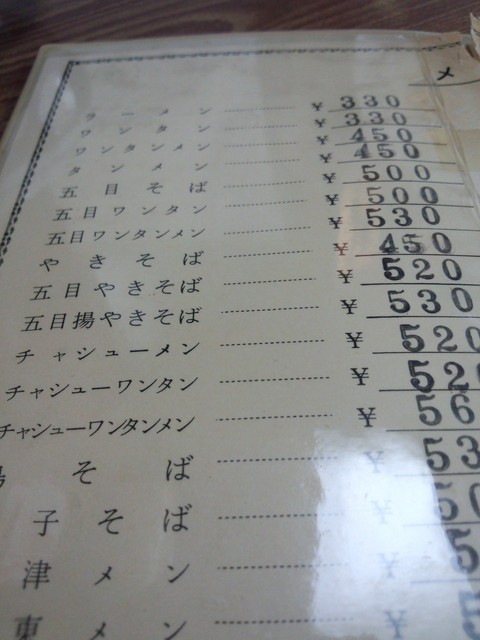 メ
ラーメン ¥330
ワンタン ¥330
ワンタンメン ¥450
タンメン ¥450
五目そば ¥500
五目ワンタン ¥500
五目ワンタンメン ¥530
やきそば ¥450
五目やきそば ¥520
五目揚やきそば ¥530
チャシューメン ¥520
チャシューワンタン ¥52
チャシューワンタンメン ¥56
そば ¥53
子そば ¥50
津メン ¥5
東メン ¥5